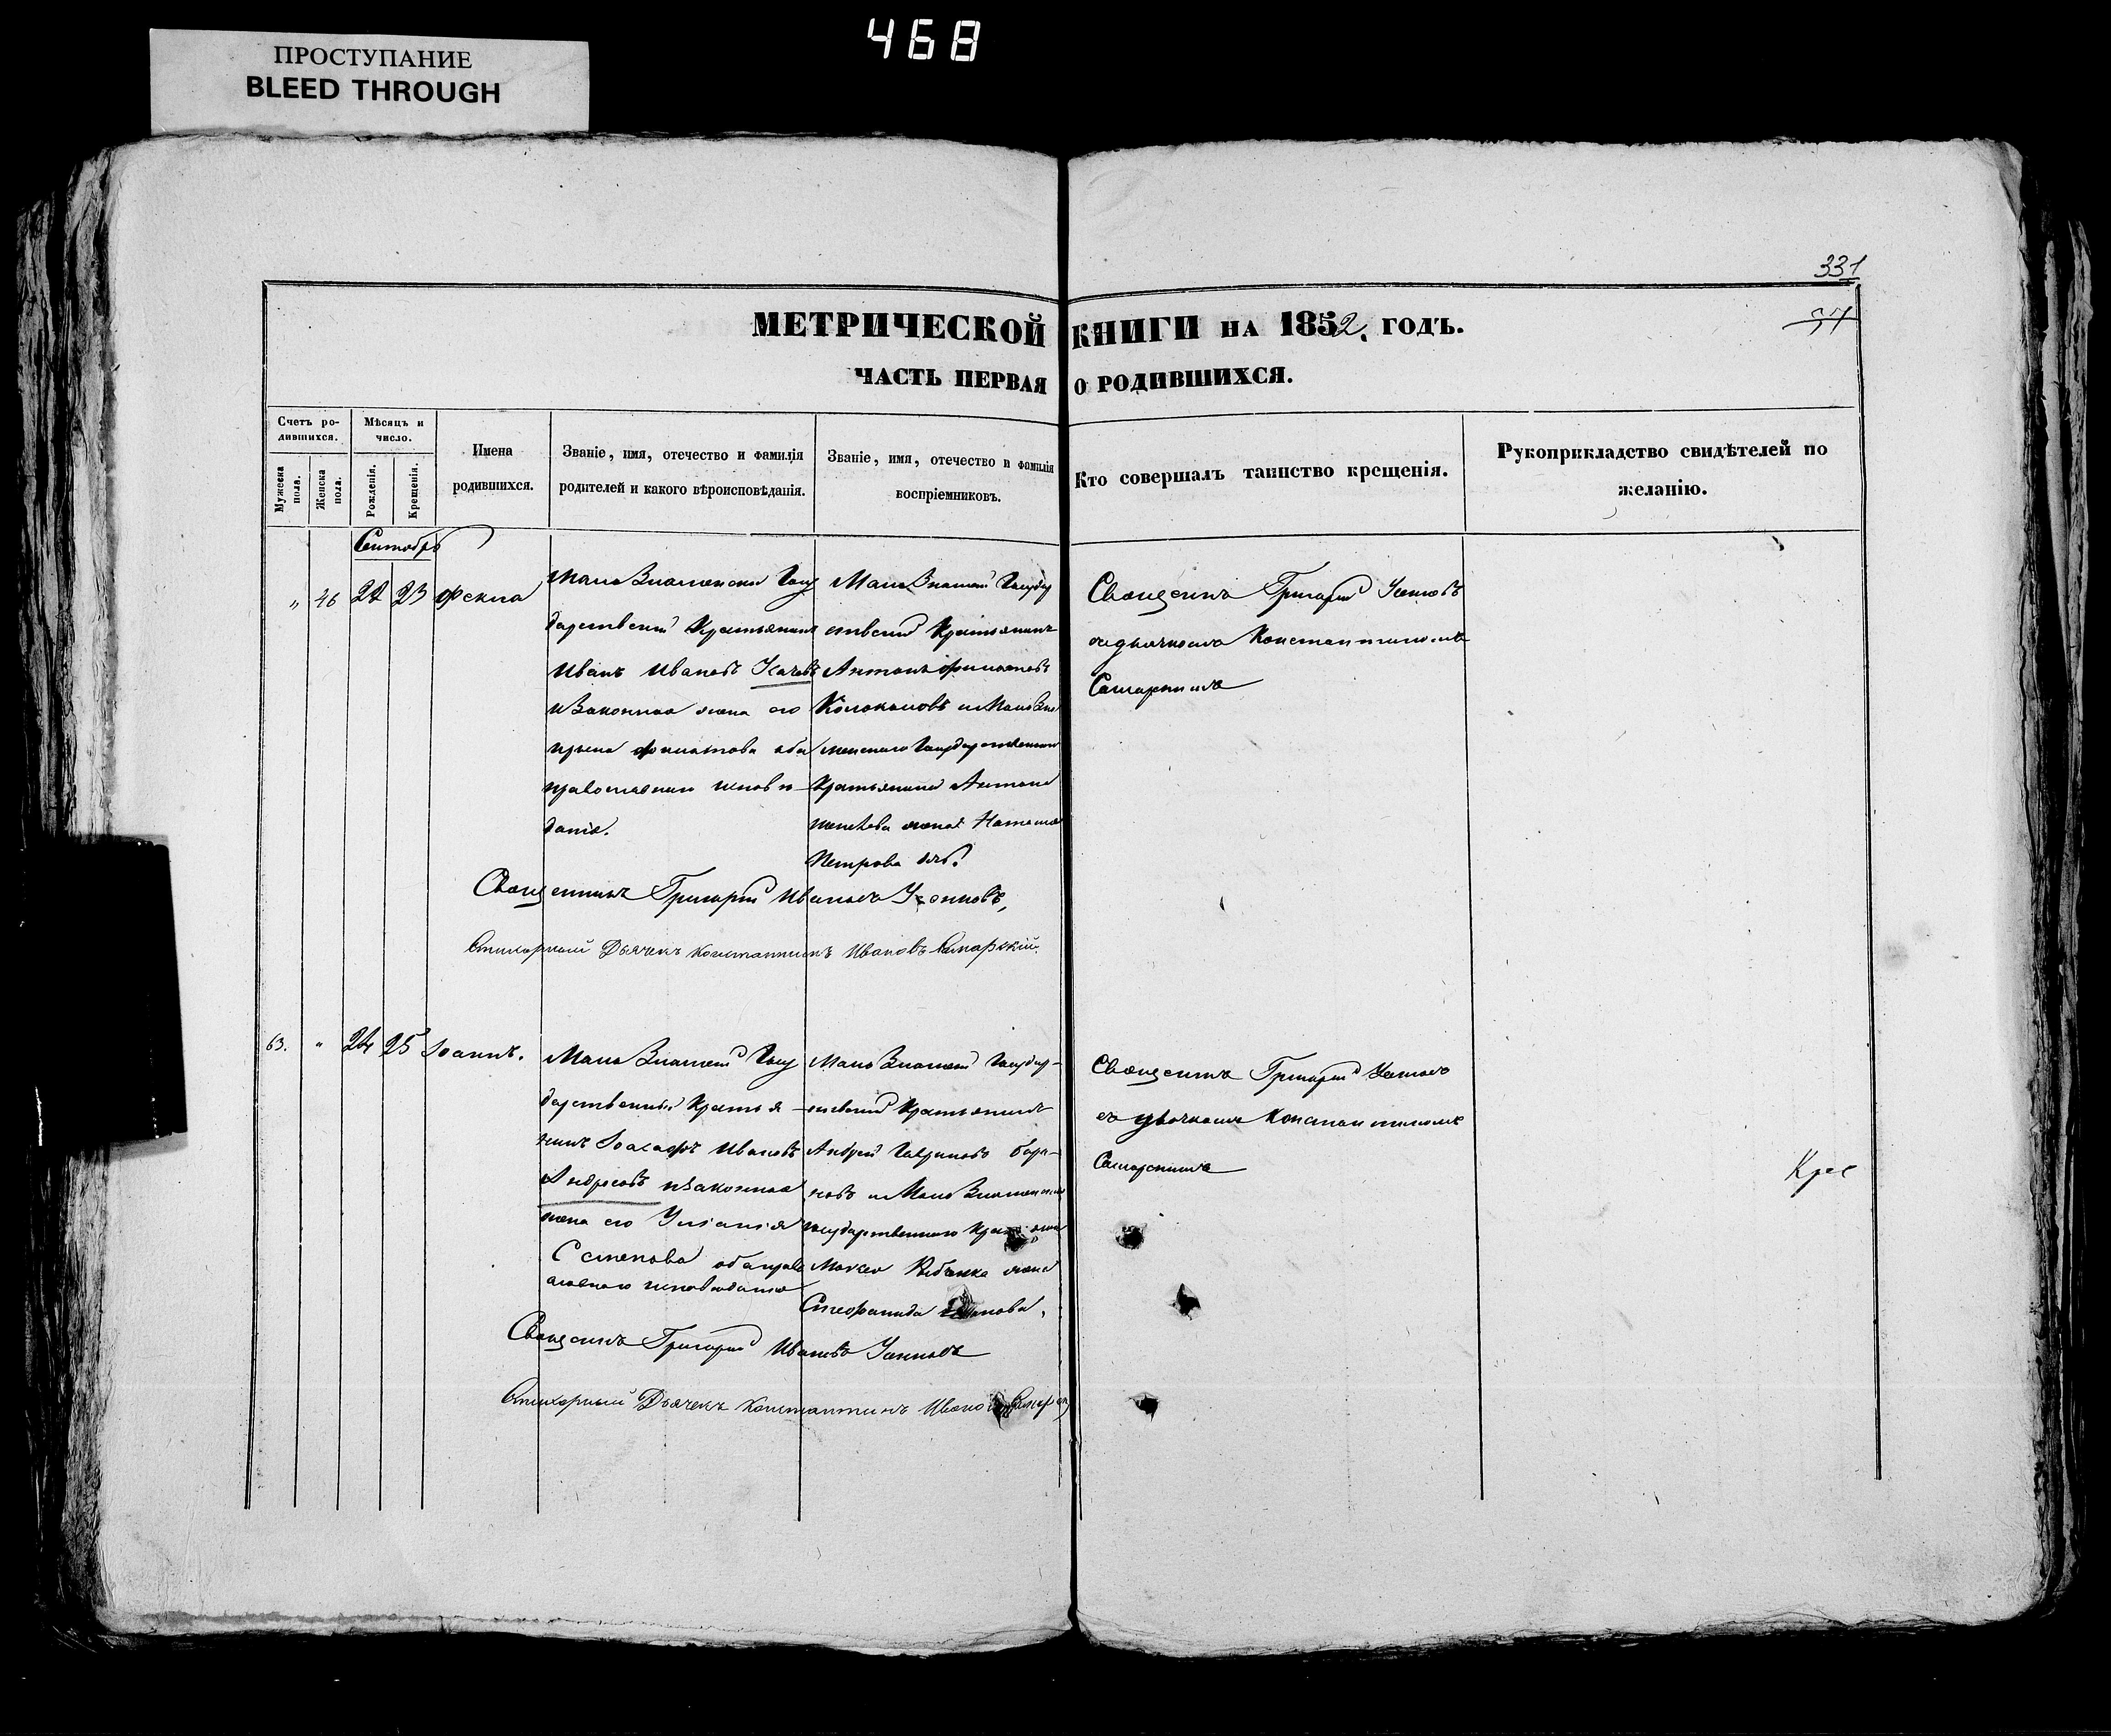 ПРОСТУПАНИЕ
BLEED THROUGH
468
331
57
МЕТРИЧЕСКОЙ КНИГИ НА 1852. ГОДЪ.
ЧАСТЬ ПЕРВАЯ О РОДИВШИХСЯ.
Счетъ ро-
дившихся.
Мужеска
пола.
Женска
пола.
Мѣсяцъ и
число.
Рожденія.
Крещенія.
Имена
родившихся.
Званіе, имя, отечество и фамилія
родителей и какого вѣроисповѣданія.
Званіе, имя, отечество и фамилія
воспріемниковъ.
Кто совершалъ таинство крещенія.
Рукоприкладство свидѣтелей по
желанію.
Сентябрь
" 46 22 23 Фекла
Мало Знаменски Госу
дарственный Крестьянинъ
Иванъ Ивановъ Усачовъ
и Законная жена его
Филатова оба
православнаго исповѣ
данія.
Мало Знамен Государ
ственный Крестьянинъ
Антонъ
и Мало Зна
менскаго Государственнаго
Крестьянина Антона
жена Наталія
Петрова
Священникъ Григорій
съ дьячкомъ Константиномъ
Самарскимъ
Священникъ Григорій Ивановъ
Стихарный Дьячекъ Константинъ Ивановъ Самарскій.
63. " 24 25 Іоаннъ.
Мало Знамен Госу
дарственный Крестья-
нинъ Іоасафъ Ивановъ
Андреевъ и законная
жена его Уліанія
Семенова оба право
славнаго исповѣданія
Мало Знамен Государ-
ственный Крестьянинъ
Андрей Гавриловъ Бара-
новъ и Мало Знаменскаго
государственнаго
Мокея жена
Стефанида
Священникъ Григорій
съ дьячкомъ Константиномъ
Самарскимъ
Крес
Священникъ Григорій Ивановъ
Стихарный Дьячекъ Константинъ